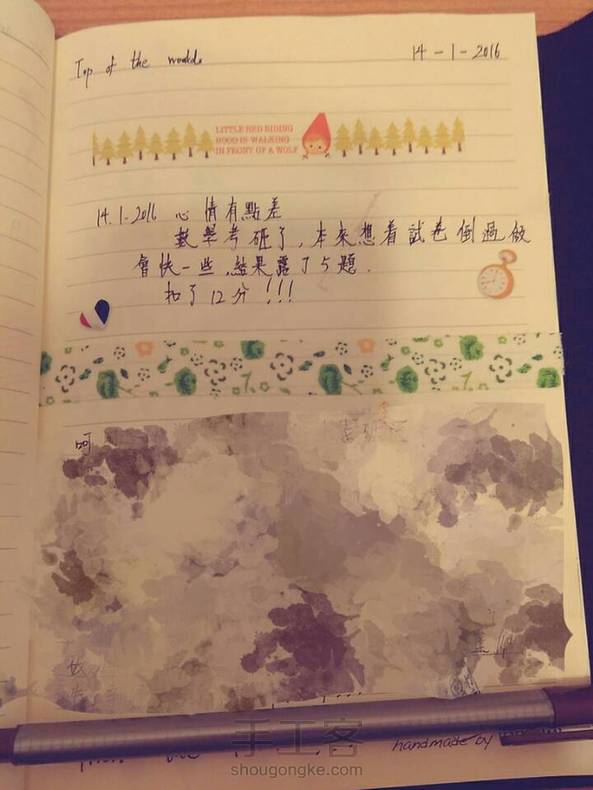 Top of the world
14-1-2016
LITTLE RED RIDING
HOOD IS WALKING
IN FRONT OF A WOLF
14.1.2016 心情有點差
數學考砸了，本來想着試卷倒過做
會快一些，結果露了5題.
扣了12分!!!
呵
手工客
handmade by
shougongke.com